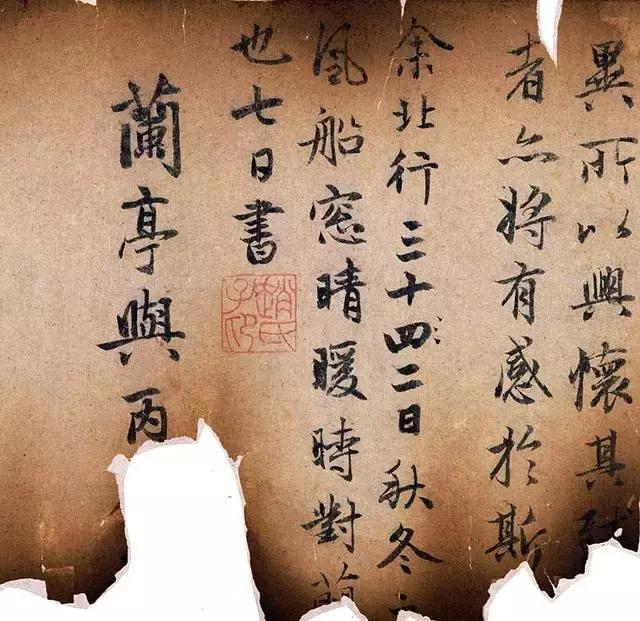 異所以興懷其
者亦將有感於斯
余北行三十四二日秋冬
風船窓晴暖時對蘭
也七日書
趙氏子昂
蘭亭與丙